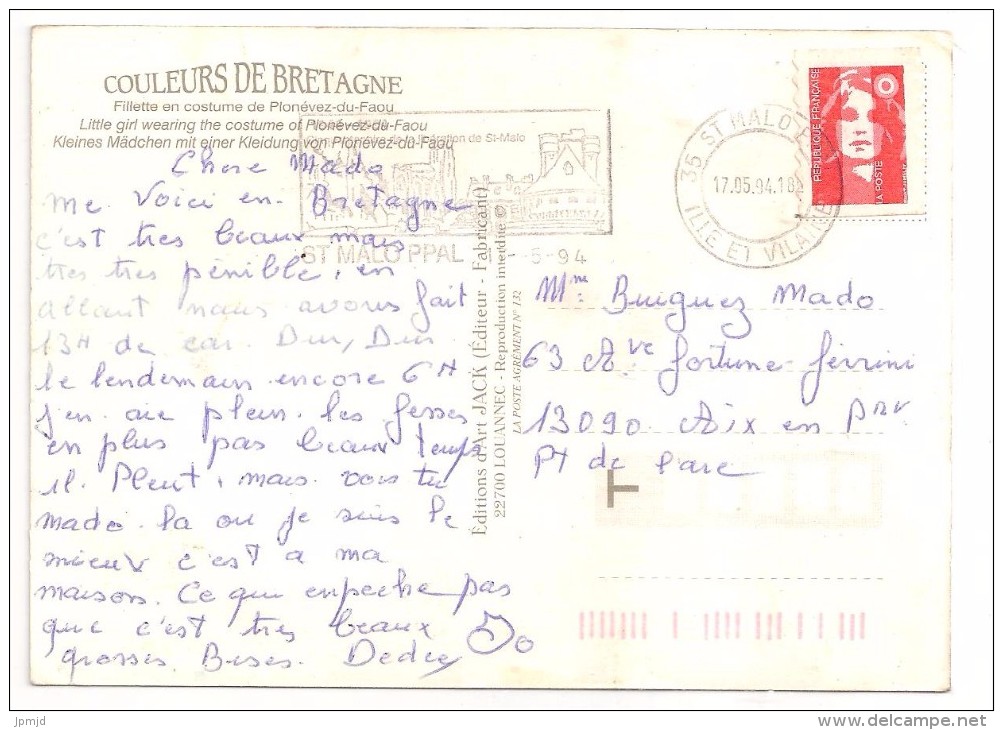 COULEURS DE BRETAGNE
Fillette en costume de Plonévez-du-Faou
Little girl wearing the costume of Plonévez-du-Faou
Kleines Mädchen mit einer Kleidung von Plonévez-du-Faou
Chere Mado
me voici en Bretagne
c'est tres beaux mais
tres tres pénible, en
allant nous avons fait
13H de car. Dur, Dur
le lendemain encore 6H
j'en aie plein les fesses
en plus pas beaux temps
il Pleut, mais vois tu
mado la ou je suis le
mieux c'est a ma
maison. Ce qui enpeche pas
que c'est tres beaux
grosses Bises. Dedée
Jo
libération de St-Malo
ST MALO PPAL
5-94
Éditions d'Art JACK (Éditeur - Fabricant)
22700 LOUANNEC - Reproduction interdite ©
LA POSTE AGRÉMENT N° 132
35 ST MALO
17.05.94.18
ILLE ET VILAINE
RÉPUBLIQUE FRANÇAISE
LA POSTE
Mme Buiguez Mado
63 Ave fortune ferrini
13090 Aix en Prv
Pt de l'arc
T
jpmjd
www.delcampe.net